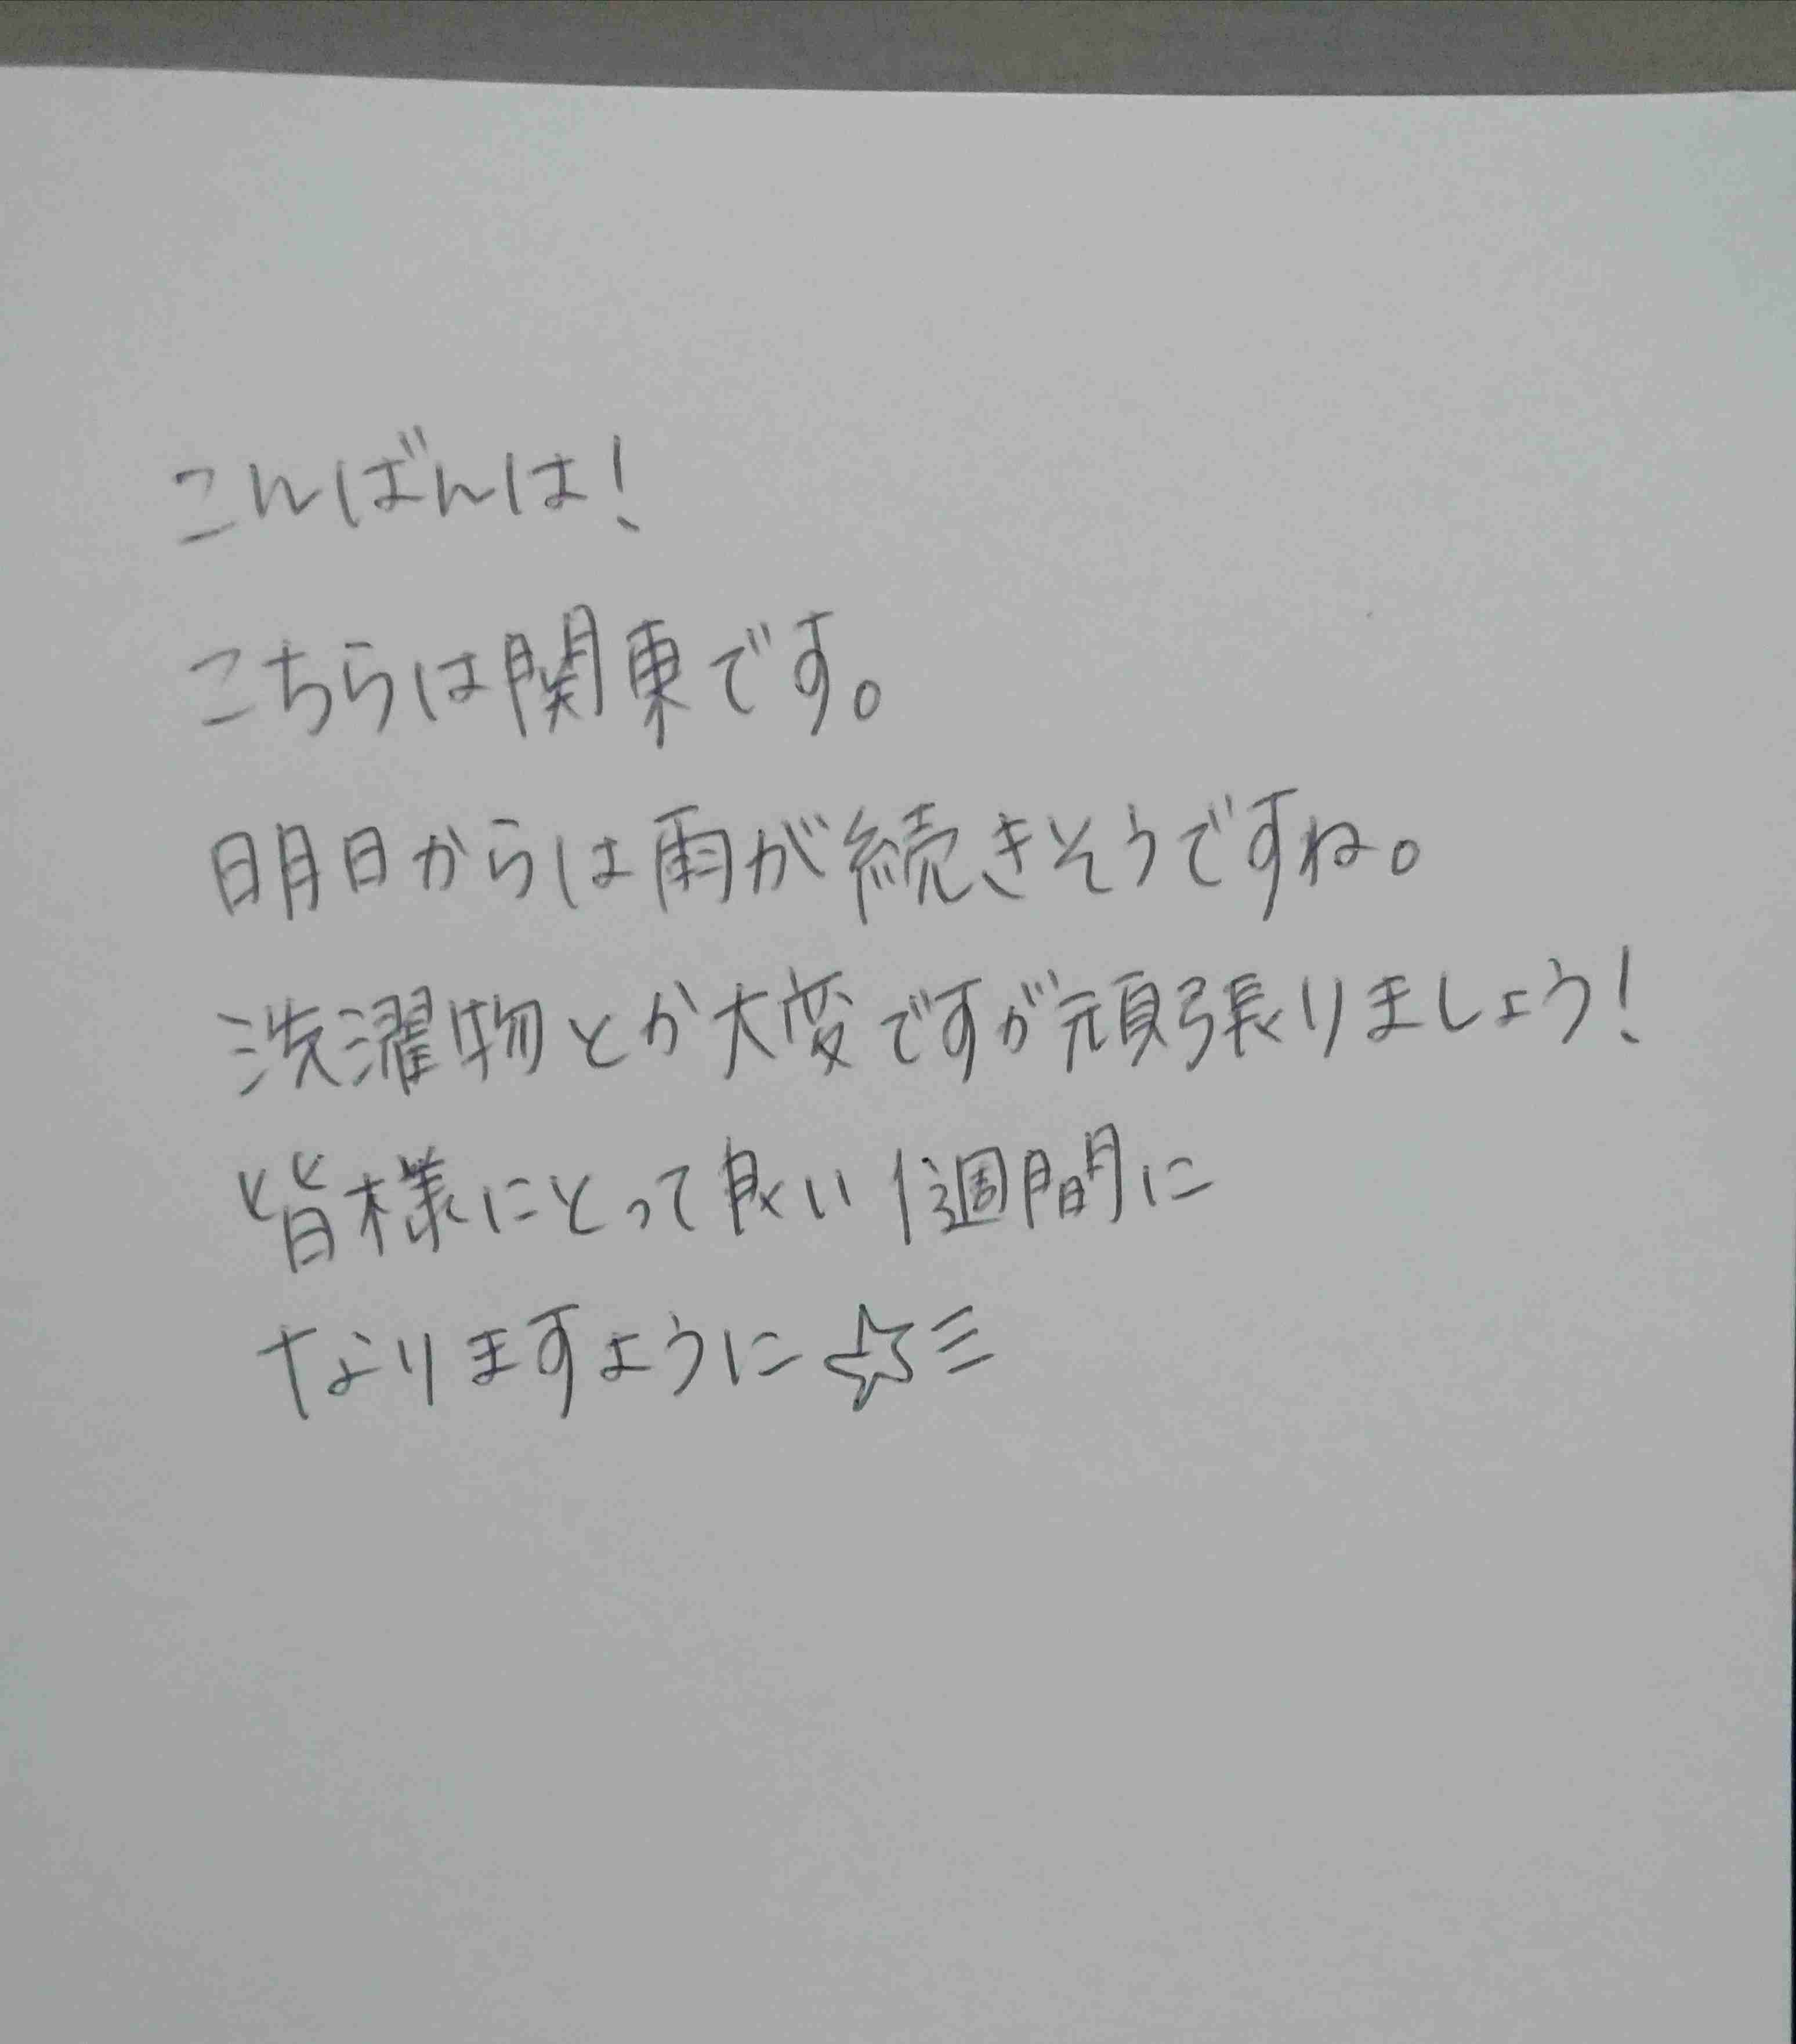 こんばんは!
こちらは関東です。
明日からは雨が続きそうですね。
洗濯物とか大変ですが頑張りましょう!
皆様にとって良い1週間に
なりますように☆彡